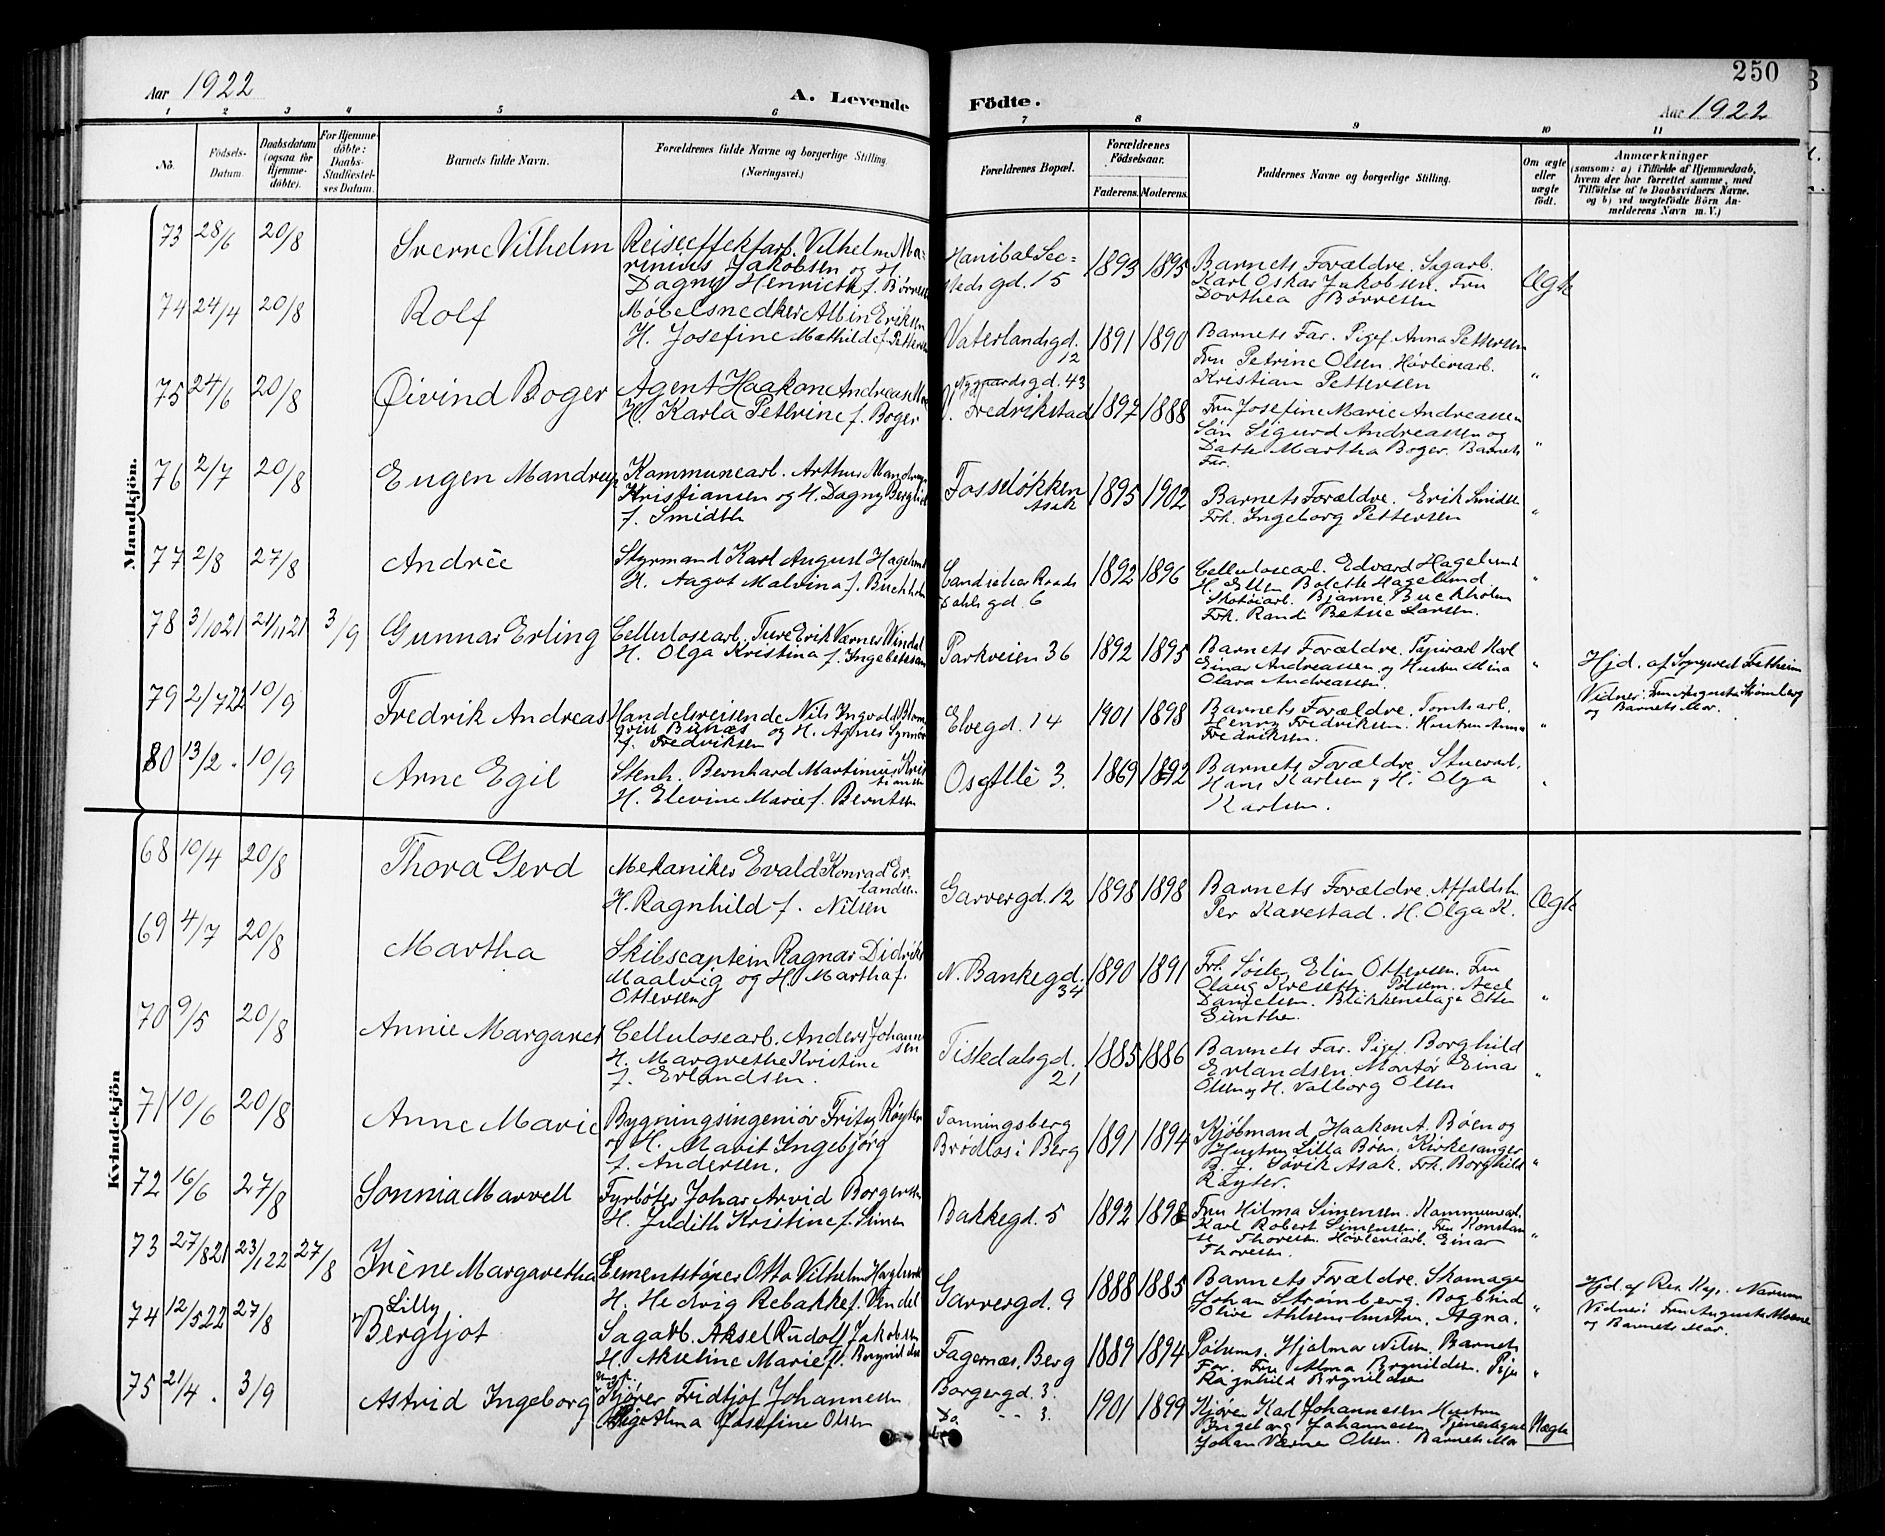 Aar 1922
A. Levende Födte.
250
Aar 1922
1 2 3 4 5 6 7 8 9 10 11
No.
Födsels-Datum.
Daabsdatum (ogsaa for Hjemme-döbte).
For Hjemme-döbte: Daabs-Stadfæstel-ses Datum.
Barnets fulde Navn.
Forældrenes fulde Navne og borgerlige Stilling.
(Næringsvei.)
Forældrenes Bopæl.
Forældrenes Födselsaar.
Faderens. Moderens.
Faddernes Navne og borgerlige Stilling.
Om ægte eller uægte födt.
Anmærkninger
(saasom: a) i Tilfælde af Hjemmedaab,
hvem der har forrettet samme, med
Tilföielse af to Daabsvidners Navne,
og b) ved uægtefödte Börn An-
melderens Navn m. V.)
Mandkjön.
73 28/6 20/8 Sverre Vilhelm Reiseeffektarb. Vilhelm Ma-
rinius Jakobsen og H.
Dagny Henriette f. Børresen
Hanibal See-
steds gd. 15 1893 1895 Barnets Forældre. Sagarb.
Karl Oskar Jakobsen. Fru
Dorthea Børresen Ægte
74 24/4 20/8 Rolf Møbelsnedker Albin Eriksen
H. Josefine Mathilde f. Pettersen
Vaterlandsgd. 12 1891 1890 Barnets Far. Pigef. Anna Pettersen
Fru Petrine Olsen. Høvleriarb.
Kristian Pettersen "
75 24/6 20/8 Øivind Boger Agent Haakon Andreas Moe
H. Karla Petrine f. Boger
Nygaardsgd. 43
Fredrikstad 1897 1888 Fru Josefine Marie Andreassen
Søn Sigurd Andreassen og
Datter Martha Boger. Barnets
Far. "
76 2/7 20/8 Eugen Mandrup Kommunearb. Arthur Mandrup
Kristiansen og H. Dagny Bergliot
f. Smidth
Fossløkken
Asak 1895 1902 Barnets Forældre. Erik Smidth
Frk. Ingeborg Pettersen "
77 2/8 27/8 Andrée Styrmand Karl August Hagelund
H. Aagot Malvina f. Buchholm
Dahls gd. 6 1892 1896 Cellulosearb. Edvard Hagelund
H. Ellen Bolette Hagelund
Skotøiarb. Bjarne Buckholm
Frk. Randi Betsie Larsen. "
78 3/10 21 24/11 21 3/9 Gunnar Erling Cellulosearb. Ture Erik Værner Windel
H. Olga Kristina f. Ingebretsen
Parkveien 36 1892 1895 Barnets Forældre. Papirarb. Karl
Einar Andreassen og Hustru Mina
Olava Andreassen. "
Hjd. af Sognepræst Fretheim
Vidner: Fru Augusta Strømberg
og Barnets Mor.
79 2/7 22 10/9 Fredrik Andreas Handelsreisende Nils Ingvald
Bunæs og H. Agnes
f. Fredriksen
Elvegd. 14 1901 1898 Barnets Forældre. Tomtearb.
Henry Fredriksen. Hustru Anna
Fredriksen. "
80 13/2 10/9 Arne Egil Stenh. Bernhard Martinius Kris
tiansen
H. Elevine Marie f. Berntsen
Os Allé 3. 1869 1892 Barnets Forældre. Stuearb.
Hans Karlsen og H. Olga
Karlsen. "
Kvindekjön
68 10/4 20/8 Thora Gerd Mekaniker Evald Konrad Er-
landsen
H. Ragnhild f. Nilsen
Garvergd. 12 1898 1898 Barnets Forældre. Affaldsh.
Per Kavestad. H. Olga K. Ægte
69 4/7 20/8 Martha Skibscaptein Ragnar Didrik
Maalvig og H. Martha f.
Ottersen
N. Bankegd. 34 1890 1891 Frk. Elin Ottersen. Fru
Danielsen. Blikkenslager Otto
Günther. "
70 9/5 20/8 Annie Margaret Cellulosearb. Anders Johann
sen
H. Margrethe Kristine
f. Erlandsen.
Tistedalsgd. 21 1885 1886 Barnets Far. Pigef. Borghild
Erlandsen. Montør Einar
Olsen og H. Valborg Olsen "
71 10/6 20/8 Anne Marie Bygningsingeniør Fritz Røyter
og H. Marit Ingebjørg
f. Andersen.
Tonningsberg
Brødløs i Berg 1891 1894 Kjøbmand Haakon A. Bøen og
Hustru Lilla Bøen. Kirkesanger
B. J. Søvik Asak. Frk. Borghild
Røyter. "
72 16/6 27/8 Sonnia Marvell Fyrbøter Johan Arvid Borgersen
H. Judith Kristine f. Simen
Bakkegd. 5 1892 1898 Fru Hilma Simensen. Kommunearb.
Karl Robert Simensen. Fru Konstan
se Thoresen. Høvleriarb. Einar
Thoresen. "
73 27/8 21 23/1 22 27/8 Irène Margaretha Cementstøper Otto Vilhelm Haglund
H. Hedvig Rebakka f. Vendel
Garvergd. 9 1888 1885 Barnets Forældre. Skomager
Johan Strømberg. Bogbind
Olive Ahlsen. Hustru Agna. "
Hjd. af Res. Kap. Navrum
Vidner: Fru Augusta Moene
og Barnets Mor.
74 12/5 22 27/8 Lilly
Bergljot Sagarb. Aksel Rudolf Jakobsen
H. Akseline Marie f. Brynildsen
Fagernæs, Berg 1889 1894 Pølsem. Hjalmar Nilsen. Barnets
Far. Fru Alma Brynildsen. Pige
Ragnhild Brynildsen "
75 21/4 3/9 Astrid Ingeborg Ungk.
Kjører Fridtjof Johannesen
Pige Alma Josefine Olsen
Borgergd. 3.
Do. " 3. 1901 1899 Kjører Karl Johannesen Hustru
Ingeborg Johannesen, Tjenestepige
Johan Værner Olsen. Barnets Mor Uægte